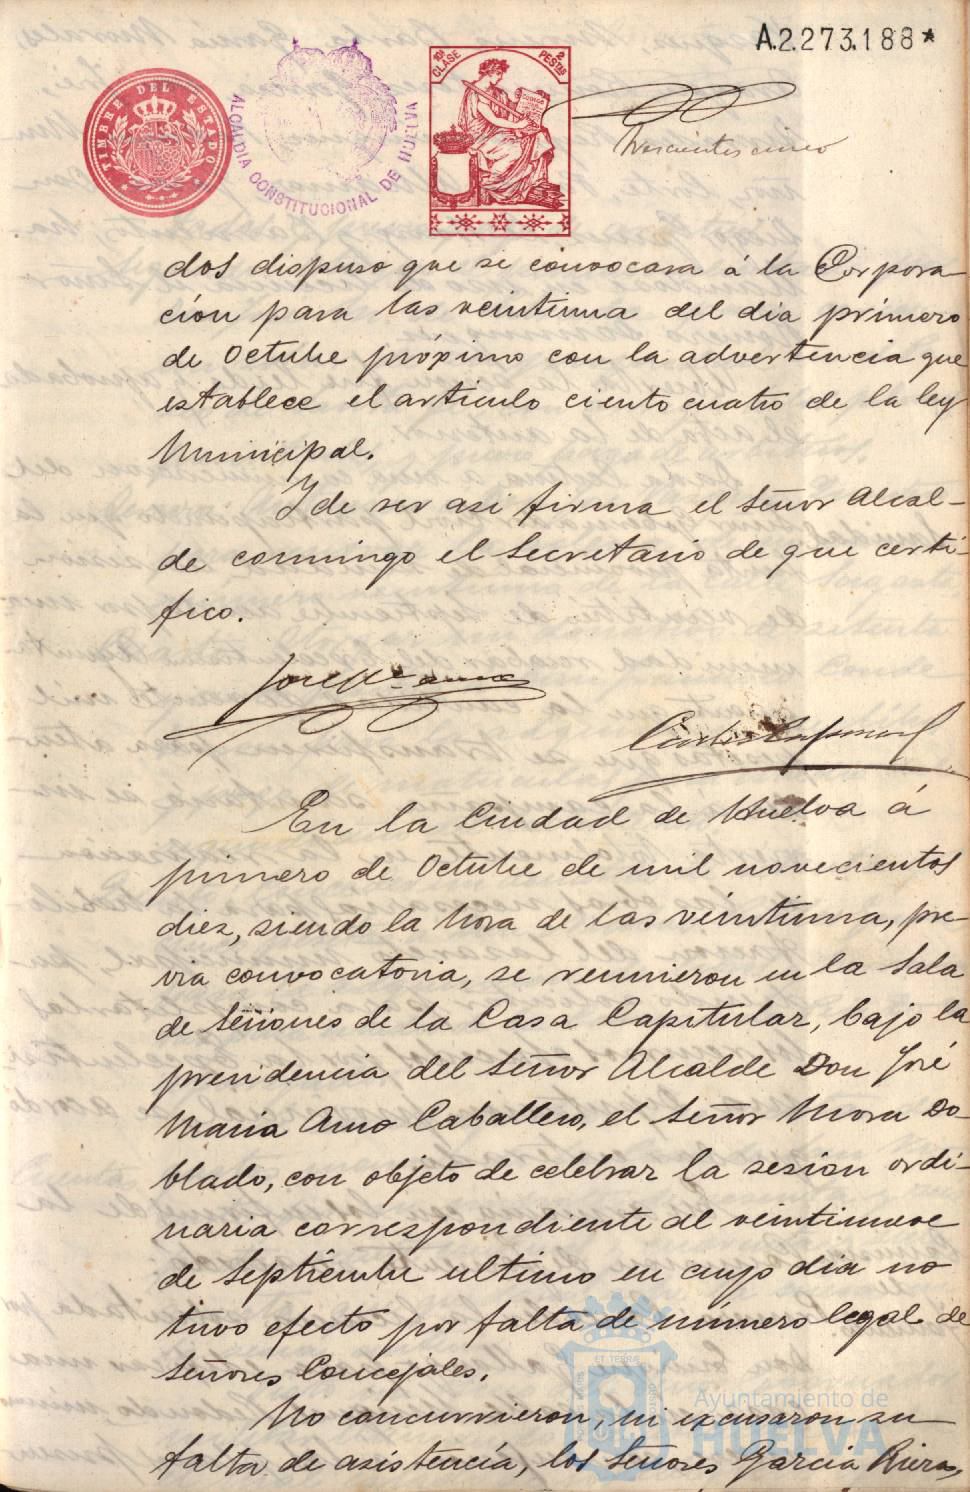 A.2.273.188*
TIMBRE DEL ESTADO
ALCALDIA CONSTITUCIONAL DE HUELVA
10ª CLASE
2 PESTAS
Trescientos cinco
dos dispuso que se convocara á la Corpora-
ción para las veintiuna del dia primero
de Octubre próximo con la advertencia que
establece el articulo ciento cuatro de la ley
Municipal.
Y de ser asi firma el Señor Alcal-
de conmingo el Secretario de que certi-
fico.
José Mª
En la Ciudad de Huelva á
primero de Octubre de mil novecientos
diez, siendo la hora de las veintiuna, pre-
via convocatoria, se reunieron en la Sala
de Sesiones de la Casa Capitular, bajo la
presidencia del Señor Alcalde Don José
Maria Amo Caballero, el Señor Mora Do-
blado, con objeto de celebrar la sesion ordi-
naria correspondiente al veintinueve
de Septiembre ultimo en cuyo dia no
tuvo efecto por falta de número legal de
Señores Concejales.
No concurrieron, ni excusaron su
falta de asistencia, los Señores Garcia Riera,
Ayuntamiento de
HUELVA